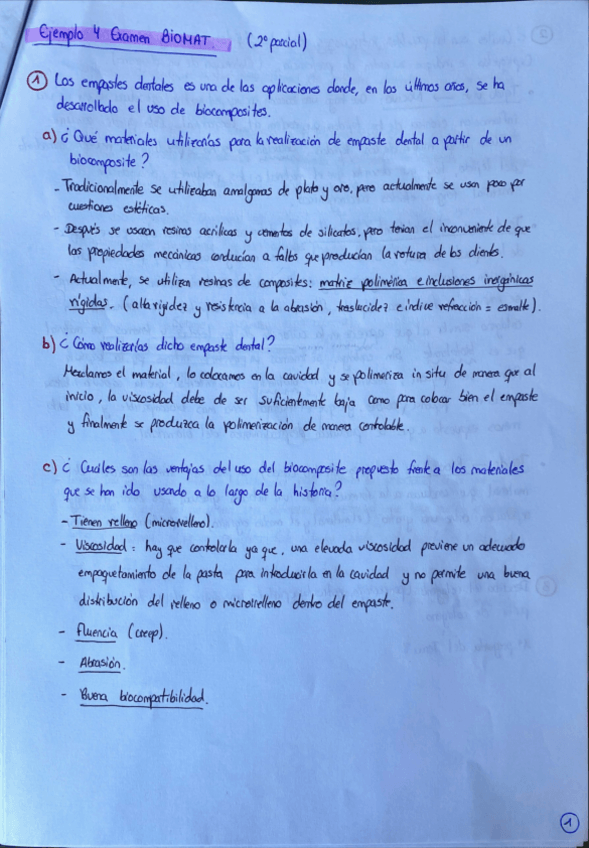 Ejemplo 4 Examen BIOMAT. (2º parcial)
1 Los empastes dentales es una de las aplicaciones donde, en los últimos años, se ha
desarrollado el uso de biocomposites.
a) ¿Qué materiales utilizarías para la realización de empaste dental a partir de un
biocomposite?
- Tradicionalmente se utilizaban amalgamas de plata y oro, pero actualmente se usan poco por
cuestiones estéticas.
- Después se usaron resinas acrílicas y cementos de silicatos, pero tenían el inconveniente de que
las propiedades mecánicas conducían a fallos que producían la rotura de los dientes.
- Actualmente, se utiliza resinas de composites: matriz polimérica e inclusiones inorgánicas
rígidas. (alta rigidez y resistencia a la abrasión, traslucidez e índice refracción = esmalte).
b) ¿Cómo realizarías dicho empaste dental?
Mezclamos el material, lo colocamos en la cavidad y se polimeriza in situ de manera que al
inicio, la viscosidad debe de ser suficientemente baja como para colocar bien el empaste
y finalmente se produzca la polimerización de manera controlable.
c) ¿Cuáles son las ventajas del uso del biocomposite propuesto frente a los materiales
que se han ido usando a lo largo de la historia?
- Tienen relleno (microrrelleno).
- Viscosidad: hay que controlarla ya que, una elevada viscosidad previene un adecuado
empaquetamiento de la pasta para introducirla en la cavidad y no permite una buena
distribución del relleno o microrrelleno dentro del empaste.
- Fluencia (creep).
- Abrasión.
- Buena biocompatibilidad.
1